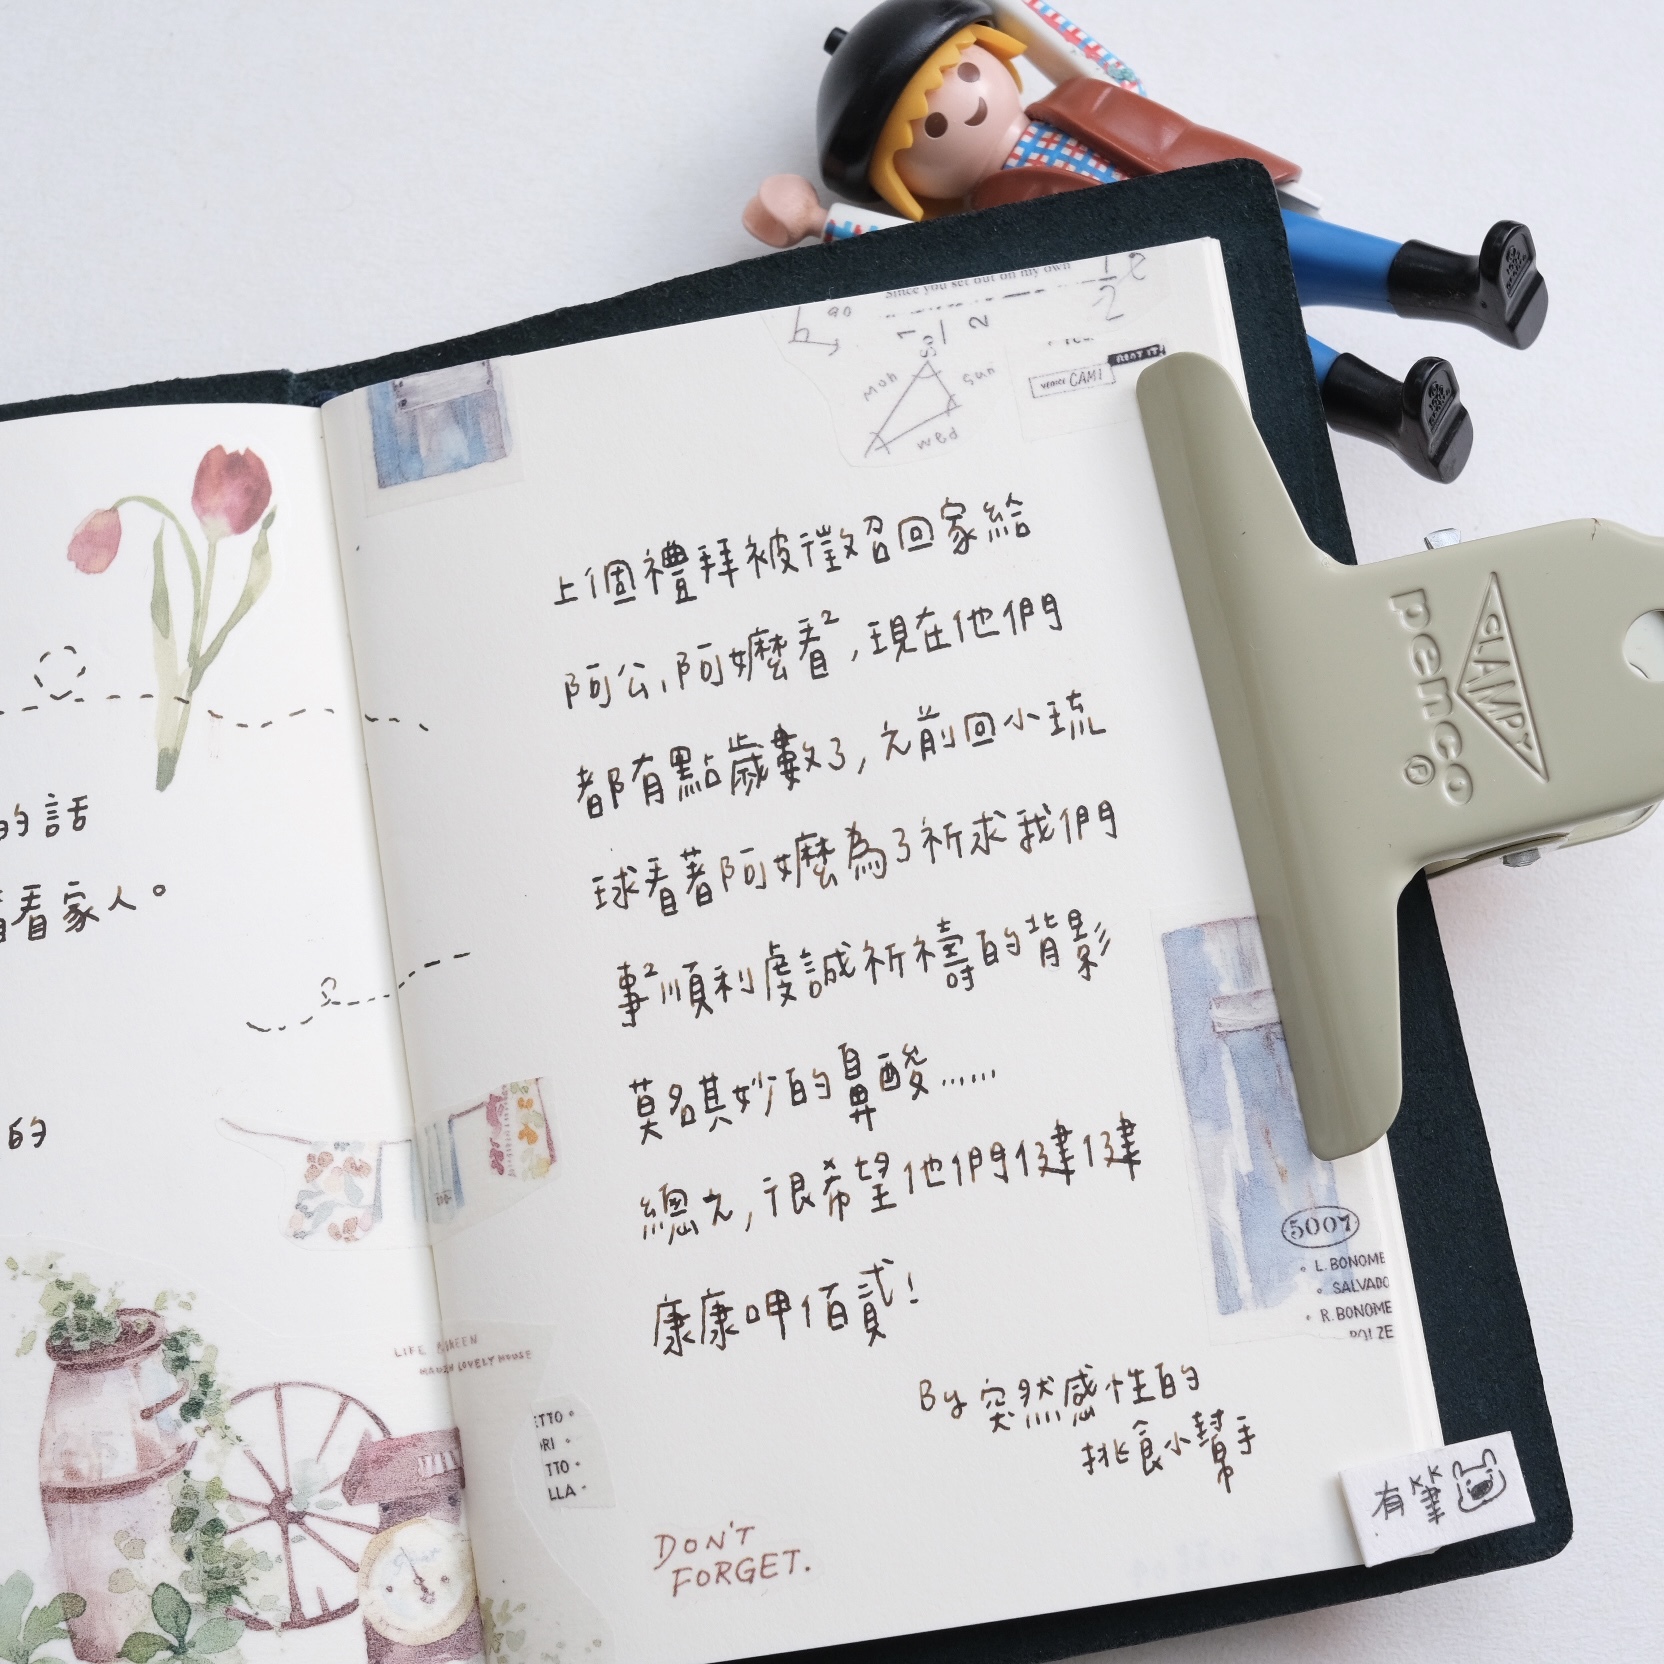 的話
看家人。
的
Since you set out on my own
1/2 e
90
1
2
Mon
Sun
wed
VENICE CAMI
上個禮拜被徵召回家給
阿公、阿嬤看²,現在他們
都有點歲數了,之前回小琉
球看著阿嬤為了祈求我們
事²順利虔誠祈禱的背影
莫名其妙的鼻酸……
總之,很希望他們健健
康康呷佰貳!
By 突然感性的
挑食小幫手
DON'T
FORGET.
LIFE GREEN
LOVELY HOUSE
ETTO
ORI
TTO
LLA
5007
L. BONOME
SALVADO
R. BONOME
有筆
CLAMPY
penco